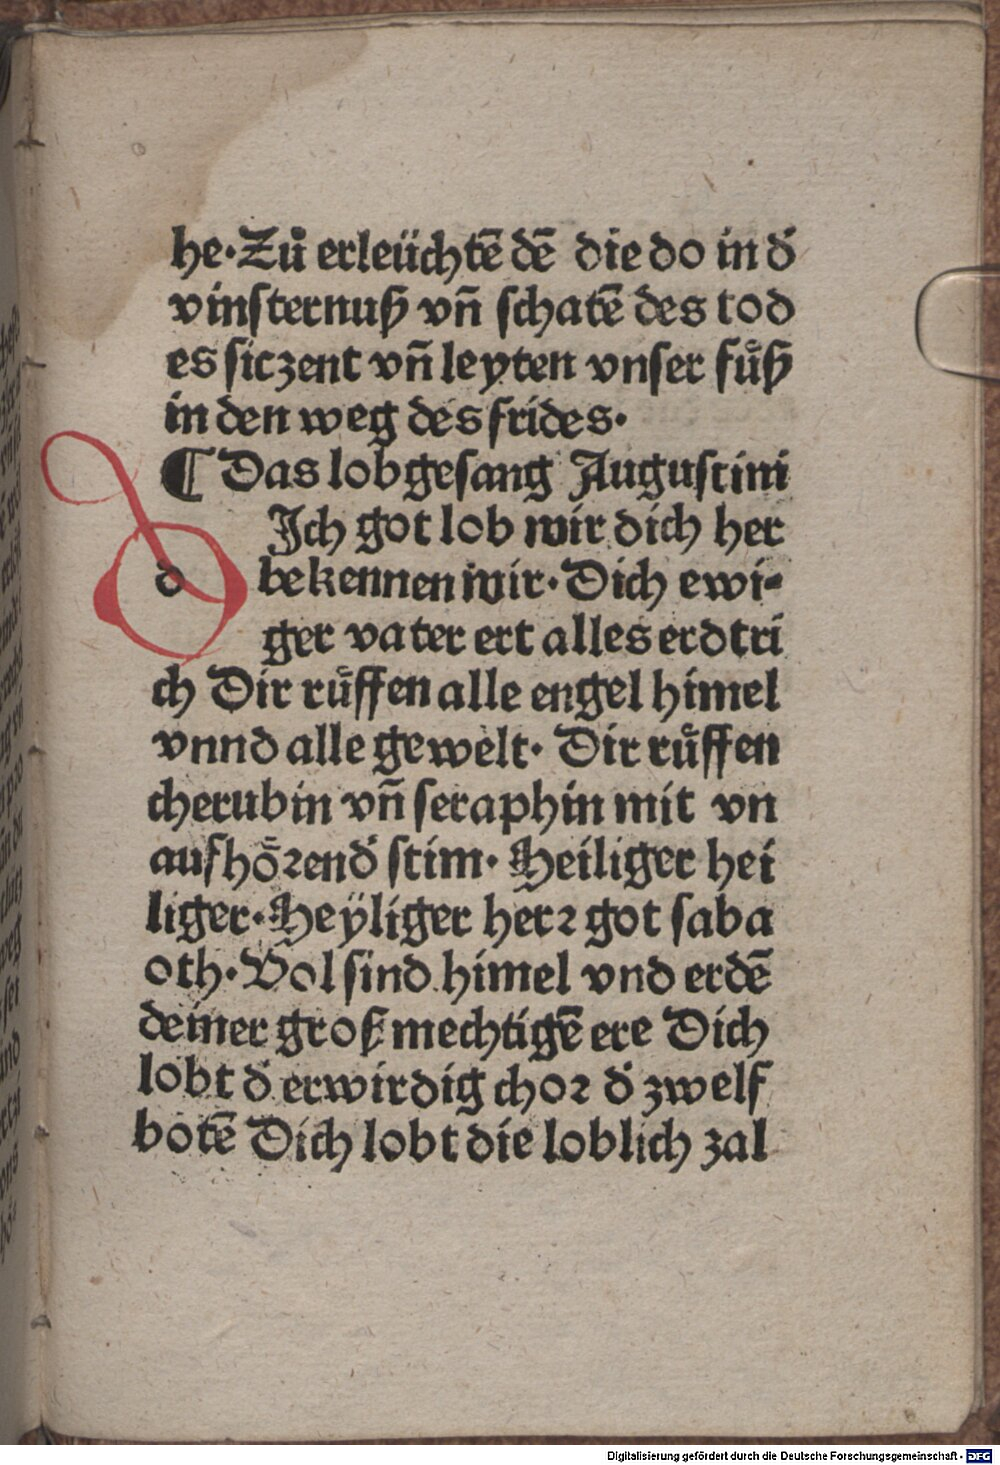 he·Zů erleüchtē dē die do in d̕
vinsternuß vñ schatē des tod
es siczent vñ leyten vnser fůß
in den weg des frides·
¶ Das lobgesang Augustini
d Jch got lob wir dich her
bekennen wir· Dich ewi⸗
ger vater ert alles erdtri
ch Dir růffen alle engel himel
vnnd alle gewelt· Dir růffen
cherubin vñ seraphin mit vn
aufhoͤꝛend̕ stim· Heiliger hei
liger·Heÿliger herꝛ got saba
oth·Vol sind himel vnd erdē
deiner groß mechtigē ere Dich
lobt d̕ erwirdig choꝛ d̕ zwelf
botē Dich lobt die loblich zal
Digitalisierung gefördert durch die Deutsche Forschungsgemeinschaft - DFG